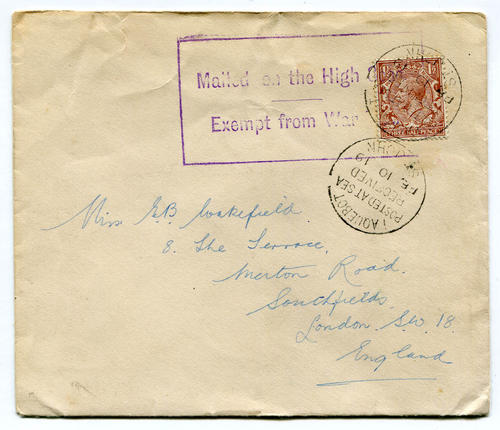 Mailed on the High
Exempt from War
PAQUEBOT
POSTED AT SEA
RECEIVED
10 19
Miss G.B. Wakefield
8. The Terrace,
Merton Road.
Southfields.
London S.W. 18.
England